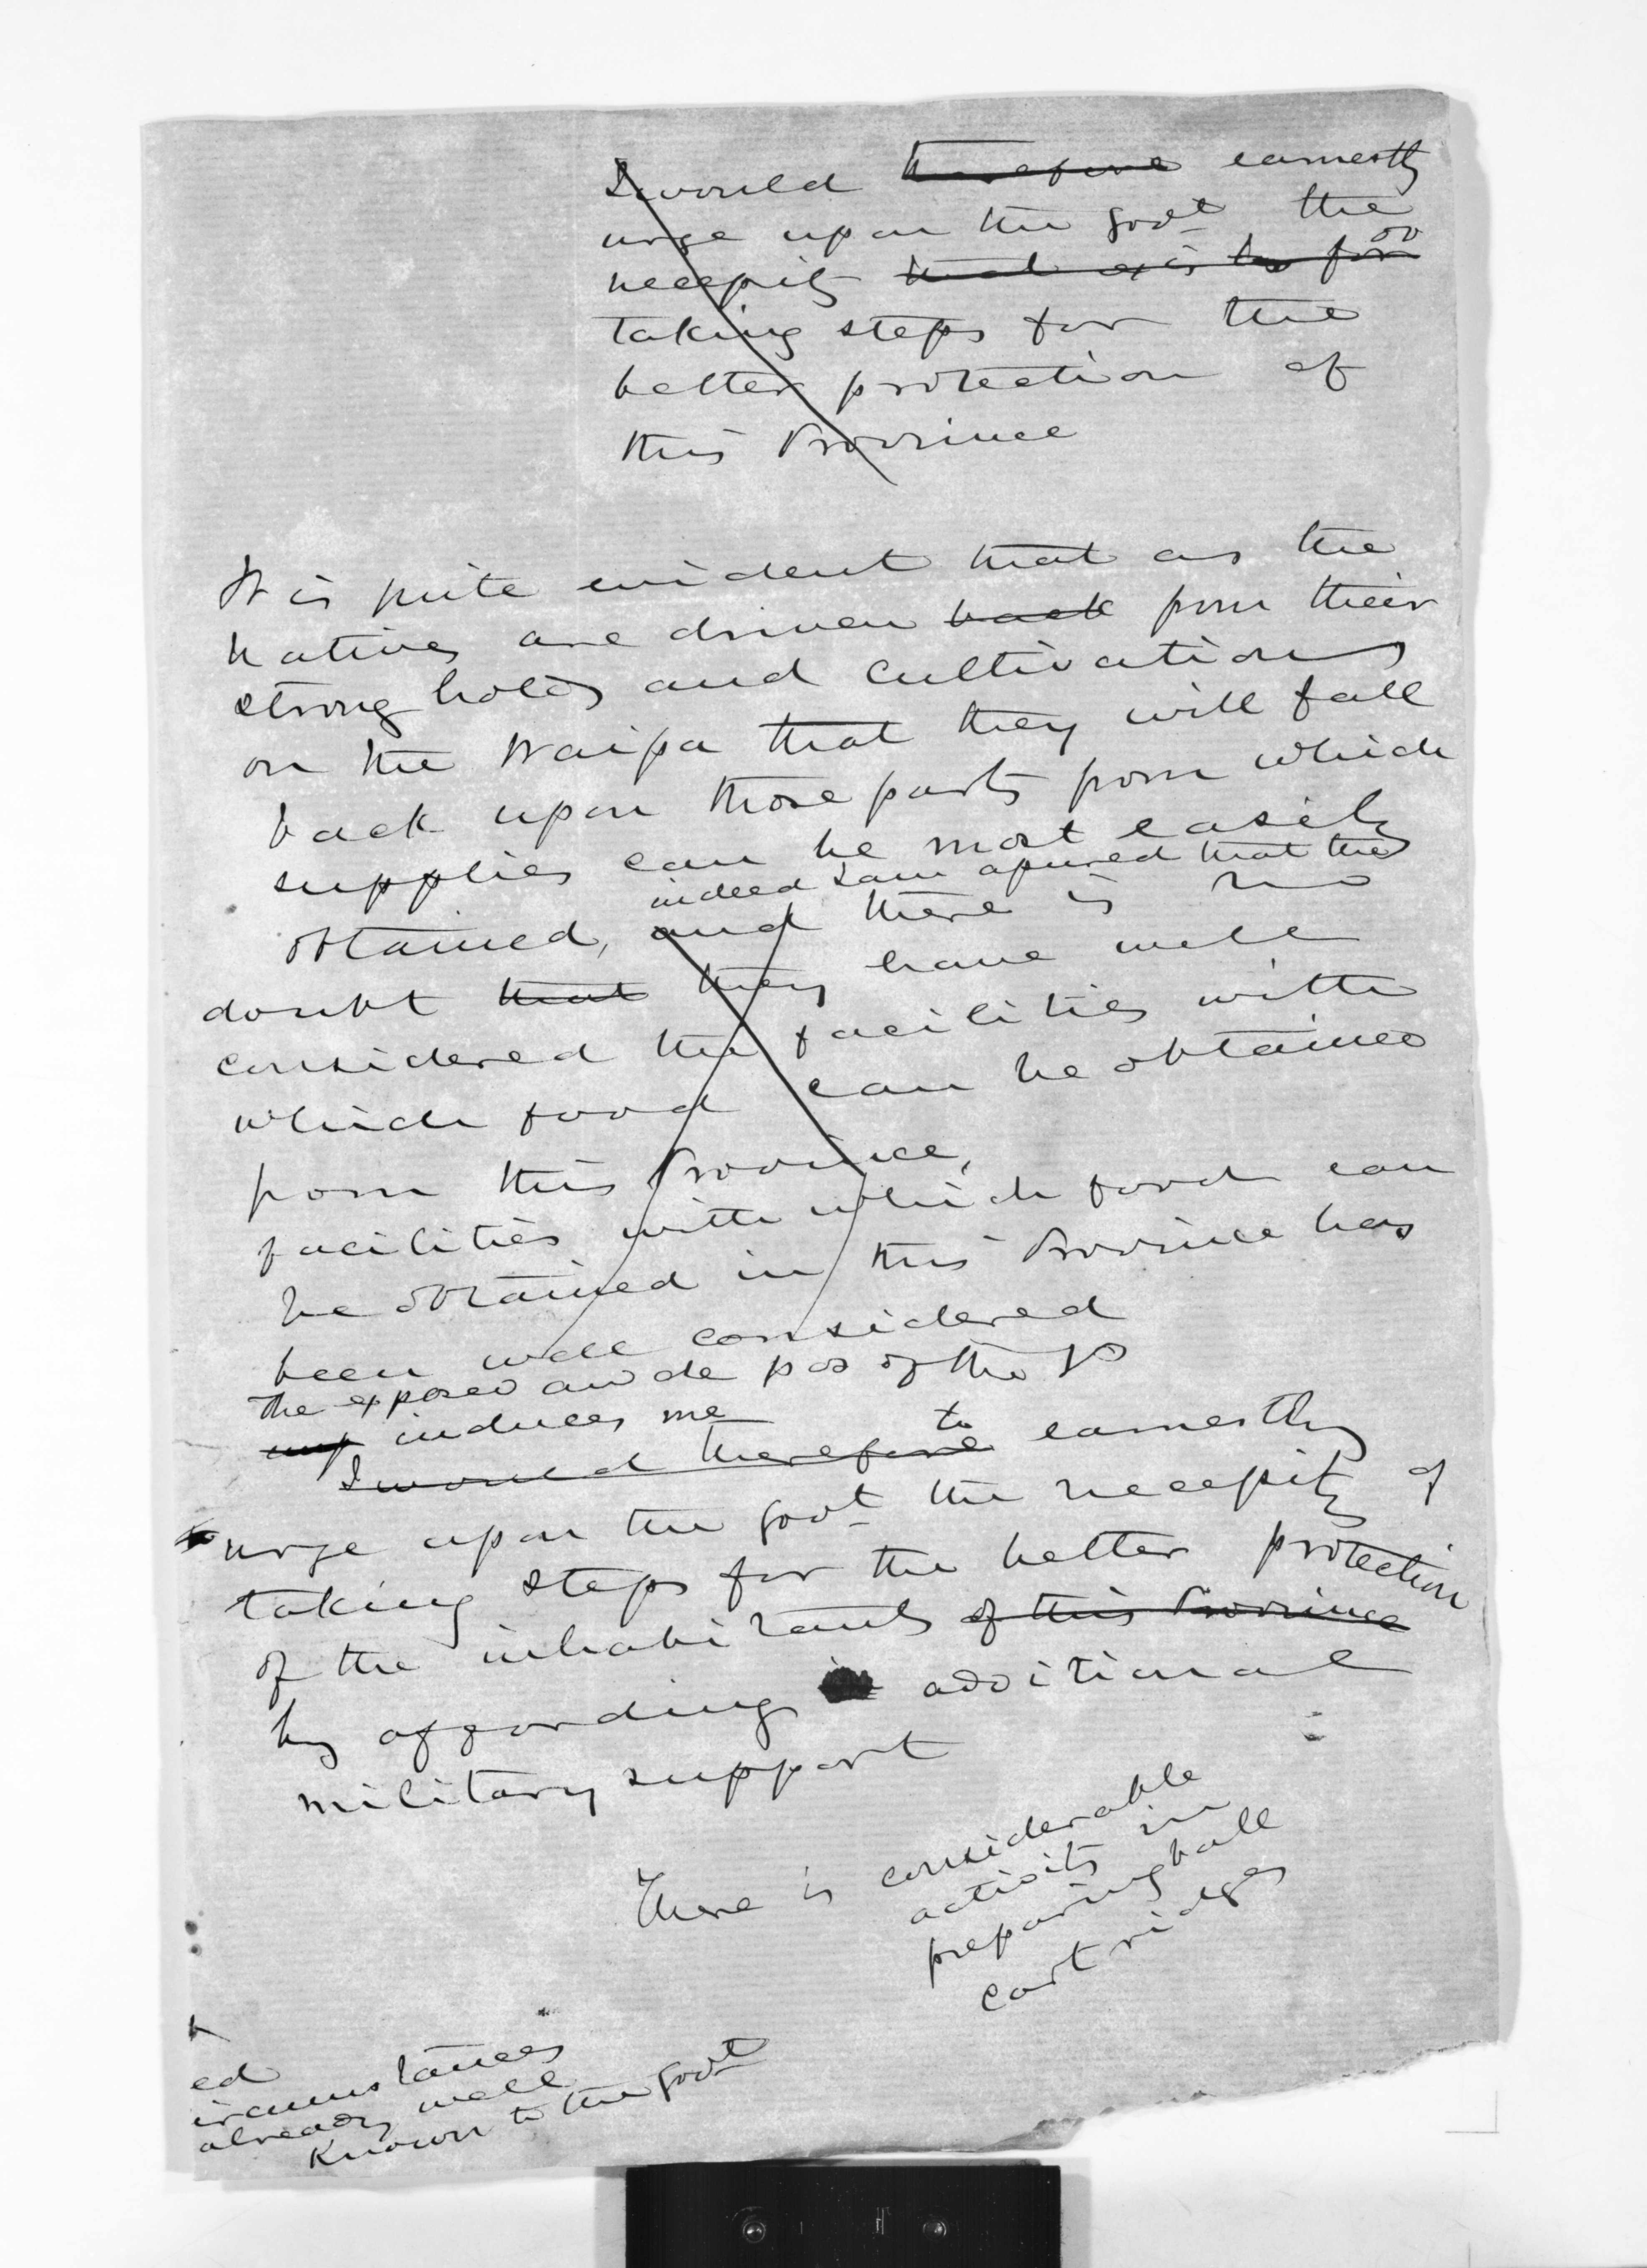 I would therefore earnestly
urge upon the Govt the
necessity that exis for of
taking steps for the
better protection of
this Province
It is quite evident that as the
natives are driven back from their
strong holds and cultivations
on the Waipa that they will fall
back upon those parts from which
supplies can be most easily
indeed I am assured that the
obtained, and there is no
doubt that they have well
considered the facilities with
which food can be obtained
from this Province,
facilities with which food can
be obtained in this Province has
been well considered
the exposed and de pos of the P
induces me to
I would therefore earnestly
urge upon the Govt the necessity of
taking steps for the better protection
of the inhabitants of this Province
by affording additional
military support
There is considerable
activity in
preparing ball
cartridges
ed
ircumstances
already well
known to the Govt